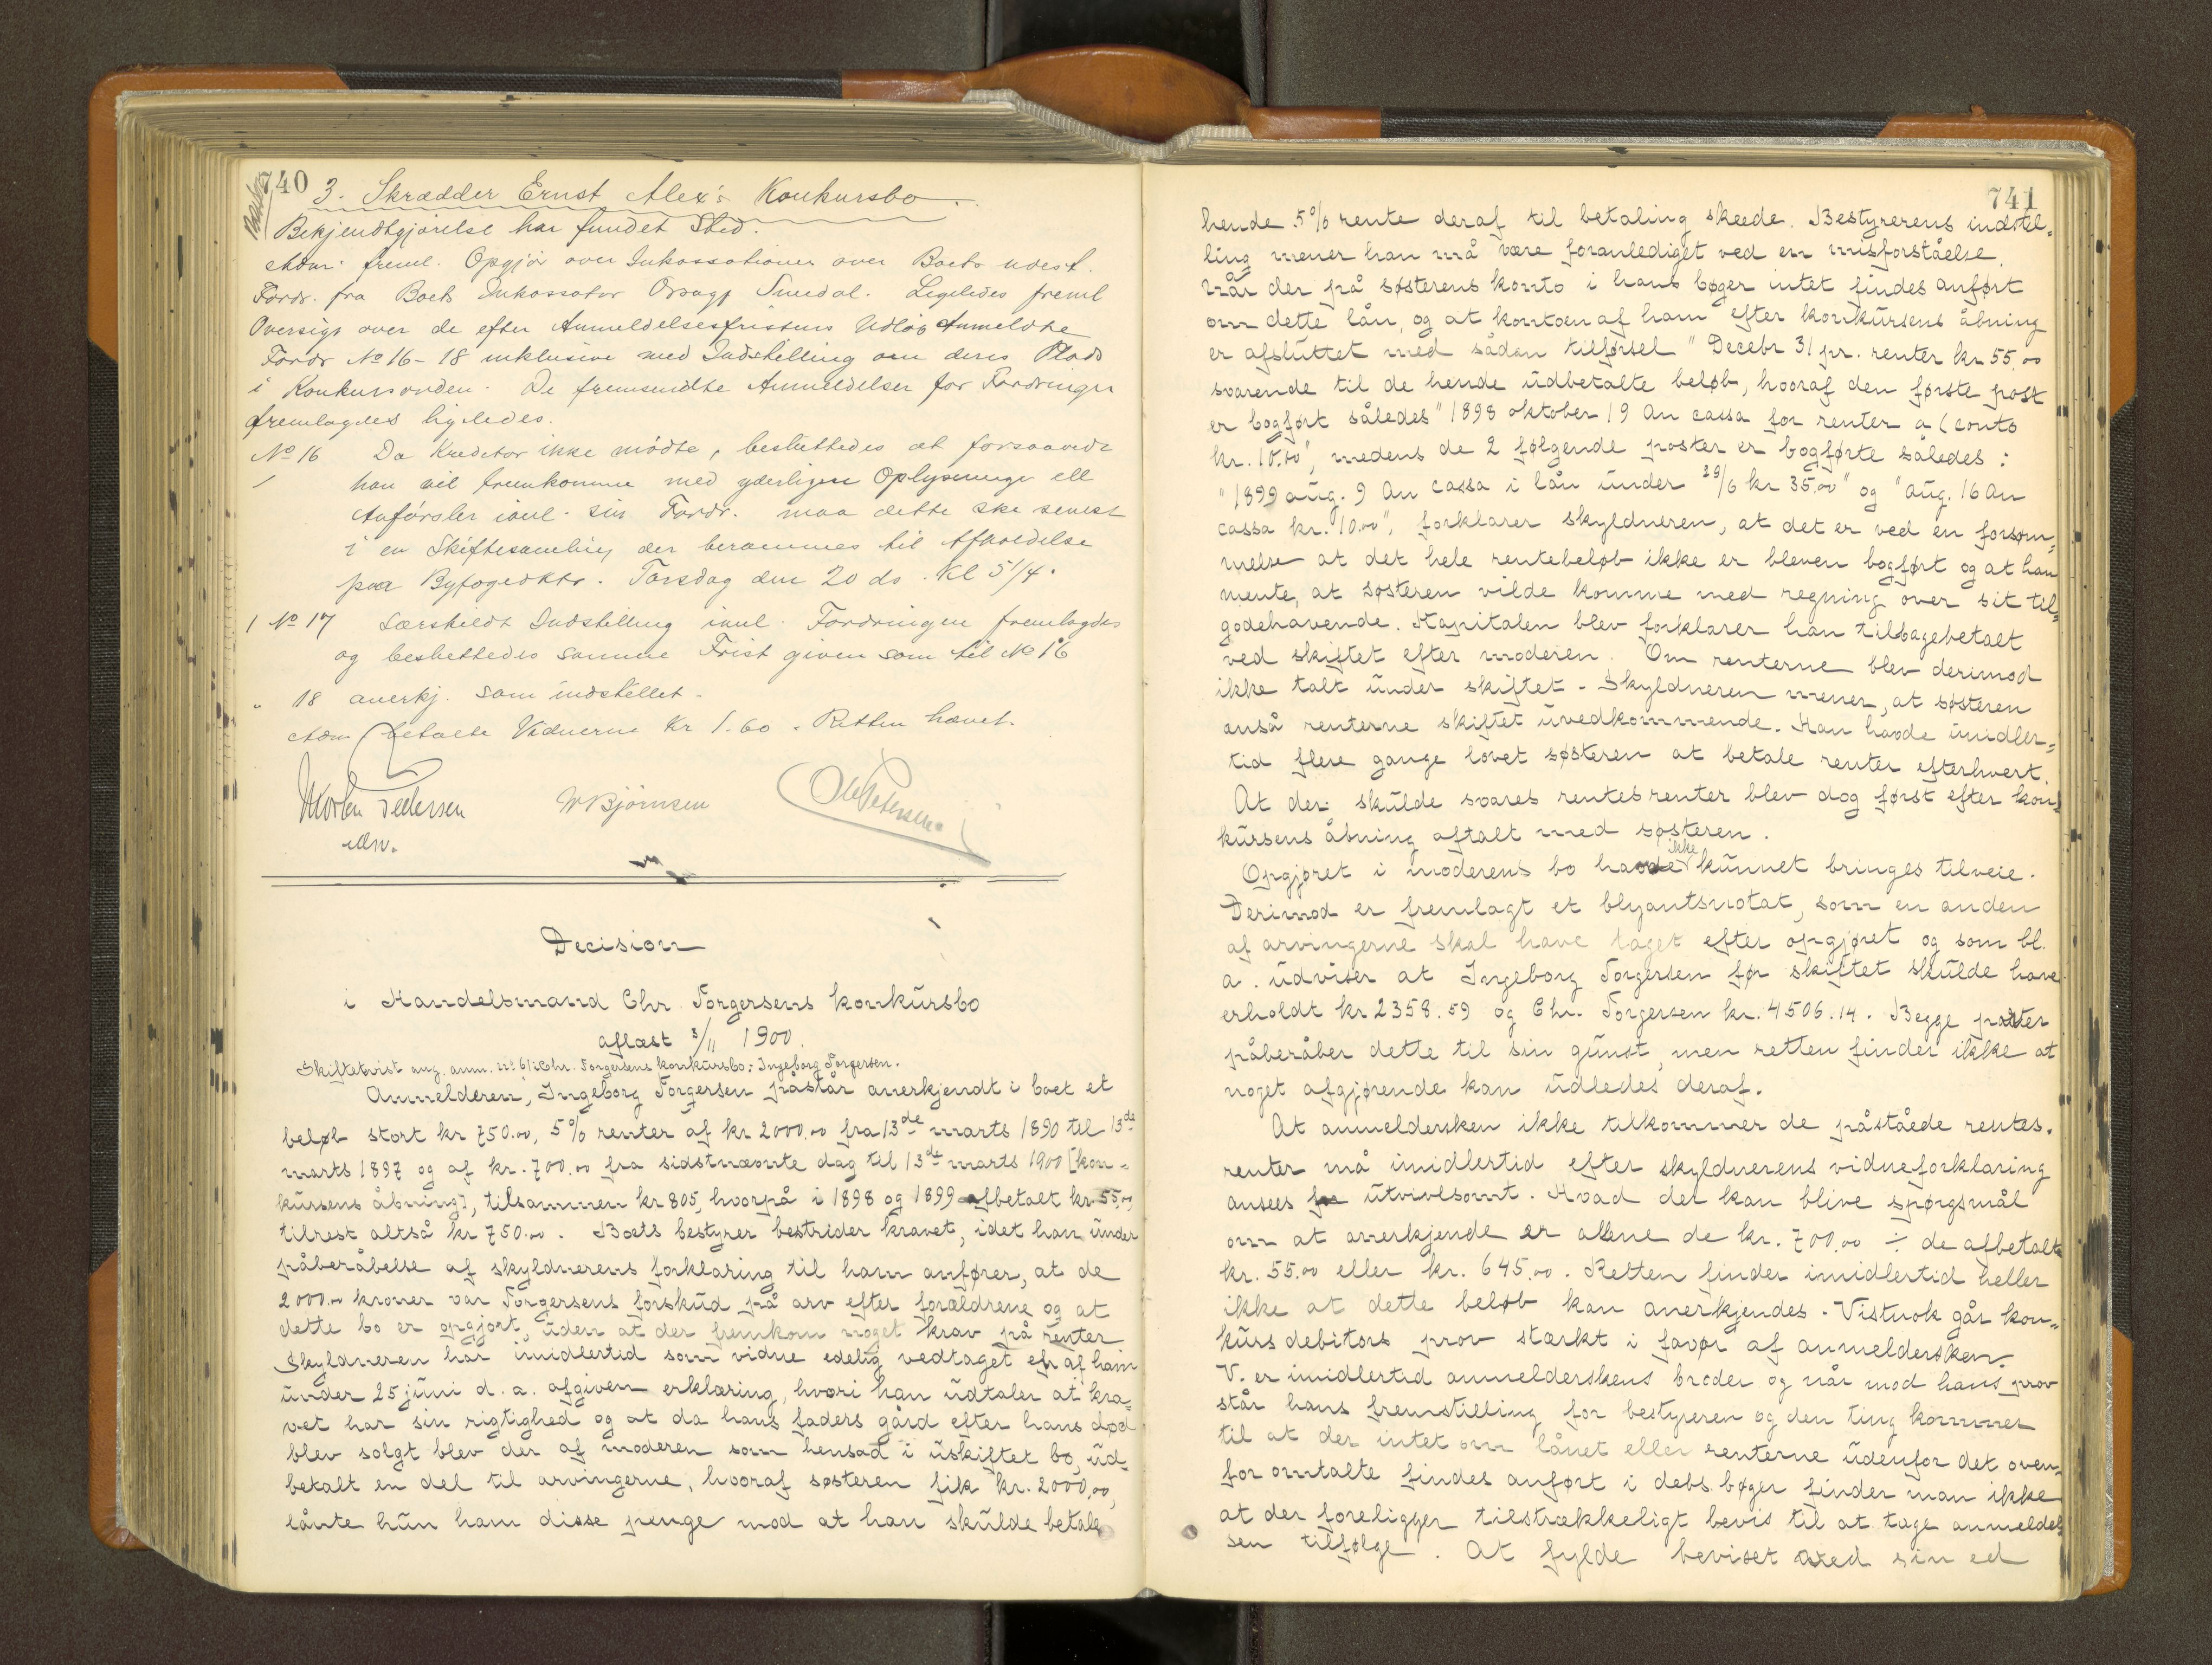 740
3. Skrædder Ernst Alex's Konkursbo.
Bekjendtgjørelse har fundet Sted.
Adm. freml. Opgjör over Inkassationer over Boets udest.
Fordr. fra Boets Inkassator Smedal. Ligeledes freml
Oversigt over de efter Anmeldelsesfristens Udløb Anmeldte
Fordr No 16-18 inklusive med Indstilling om deres Plads
i Konkursorden. De fremsendte Anmeldelser for Fordringer
fremlagdes ligeledes.
No 16 Da Kreditor ikke mödte, besluttedes at forsaavidt
han vil fremkomme med yderligere Oplysninger ell
Anförsler sin Fordr. maa dette ske senest
i en Skiftesamling der berammes til Afholdelse
paa Byfogedktr. Torsdag den 20 ds. Kl 5 1/4.
1 No 17 Særskildt Indstilling Fordringen fremlagdes
og besluttedes samme Frist given som til No 16
" 18 anerkj. som indstillet.
Adm betalte Vidnerne Kr 1.60. Retten hævet.
Morten Pedersen W Bjørnsen Ole Petersen
Adm.
Decision
i Handelsmand Chr. Torgersens konkursbo
aflæst 3/11 1900.
Skiftetvist ang. anm. no. 6 i Chr. Torgersens konkursbo: Ingeborg Torgersen.
Anmelderen, Ingeborg Torgersen påstår anerkjendt i boet et
beløb stort kr 750.00, 5% renter af kr 2000.00 fra 13de marts 1890 til 13de
marts 1897 og af kr. 700.00 fra sidstnævnte dag til 13de marts 1900 [kon-
kursens åbning], tilsammen kr 805, hvorpå i 1898 og 1899 afbetalt kr. 55.00,
tilrest altså kr 750.00. Boets bestyrer bestrider kravet, idet han under
påberåbelse af skyldnerens forklaring til ham anfører, at de
2000.00 kroner var Torgersens forskud på arv efter forældrene og at
dette bo er opgjort, uden at der fremkom noget krav på renter
Skyldneren har imidlertid som vidne edelig vedtaget en af ham
under 25 juni d. a. afgiven erklæring, hvori han udtaler at kra-
vet har sin rigtighed og at da hans faders gård efter hans død
blev solgt blev der af moderen som hensad i uskiftet bo, ud-
betalt en del til arvingerne, hvoraf søsteren fik kr. 2000,00,
lånte hun ham disse penge mod at han skulde betale
741
hende 5% rente deraf til betaling skede. Bestyrerens indstil-
ling mener han må være foranlediget ved en misforståelse.
Når der på søsterens konto i hans bøger intet findes anført
om dette lån, og at kontoen af ham efter konkursens åbning
er afsluttet med sådan tilførsel "Decebr 31 pr. renter kr 55.00
svarende til de hende udbetalte beløb, hvoraf den første post
er bogført således "1898 oktober 19 An cassa for renter a/conto
kr. 10.00", medens de 2 følgende poster er bogførte således:
"1899 aug. 9 An cassa i lån under 29/6 kr 35.00" og "aug. 16 An
cassa kr. 10.00", forklarer skyldneren, at det er ved en forsøm-
melse at det hele rentebeløb ikke er bleven bogført og at han
mente, at søsteren vilde komme med regning over sit til-
godehavende. Kapitalen blev forklarer han tilbagebetalt
ved skiftet efter moderen. Om renterne blev derimod
ikke talt under skiftet - Skyldneren mener, at søsteren
anså renterne skiftet uvedkommende. Han havde imidler-
tid flere gange lovet søsteren at betale renter efterhvert.
At der skulde svares rentesrenter blev dog først efter kon-
kursens åbning aftalt med søsteren.
Opgjøret i moderens bo havde ikke kunnet bringes tilveie.
Derimod er fremlagt et blyantsnotat, som en anden
af arvingerne skal have taget efter opgjøret og som bl.
a. udviser at Ingeborg Torgersen før skiftet skulde have
erholdt kr 2358.59 og Chr. Torgersen kr. 4506.14. Begge parter
påberåber dette til sin gunst, men retten finder ikke at
noget afgjørende kan udledes deraf.
At anmeldersken ikke tilkommer de påståede rentes-
renter må imidlertid efter skyldnerens vidneforklaring
ansees utvivlsomt. Hvad det kan blive spørgsmål
om at anerkjende er alene de kr. 700.00 ÷ de afbetalte
kr. 55.00 eller kr. 645.00. Retten finder imidlertid heller
ikke at dette beløb kan anerkjendes - Vistnok går kon-
kursdebitors prov stærkt i favør af anmeldersken.
V. er imidlertid anmelderskens broder og når mod hans prov
står hans fremstilling for bestyreren og den ting kommer
til at der intet om lånet eller renterne udenfor det oven-
for omtalte findes anført i debs. bøger finder man ikke
at der foreligger tilstrækkeligt bevis til at tage anmeldel-
sen tilfølge. At fylde beviset med sin ed